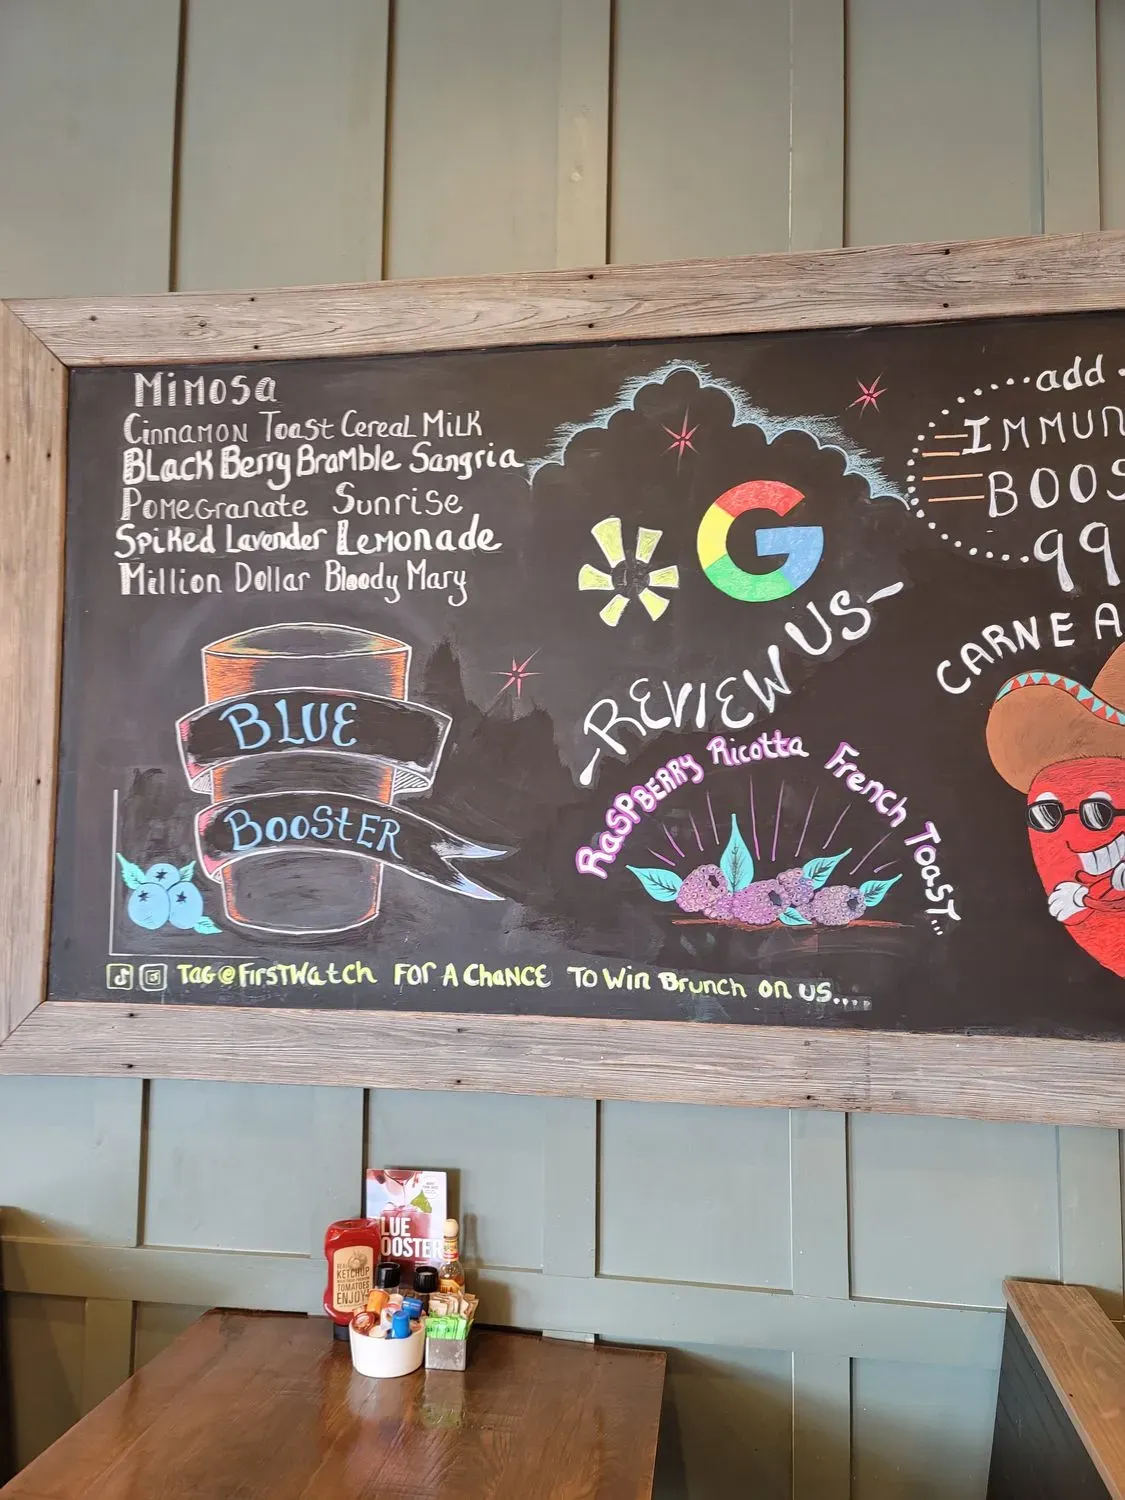 Mimosa
Cinnamon Toast Cereal Milk
Black Berry Bramble Sangria
Pomegranate Sunrise
Spiked Lavender Lemonade
Million Dollar Bloody Mary
BLUE
BOOSTER
G
-REVIEW US-
RASPBERRY Ricotta French Toast...
TAG @FirstWatch For A Chance To Win Brunch on us....
add
IMMUN
BOOS
99
CARNE A
LUE
OOSTER
KETCHUP
TOMATOES
ENJOY